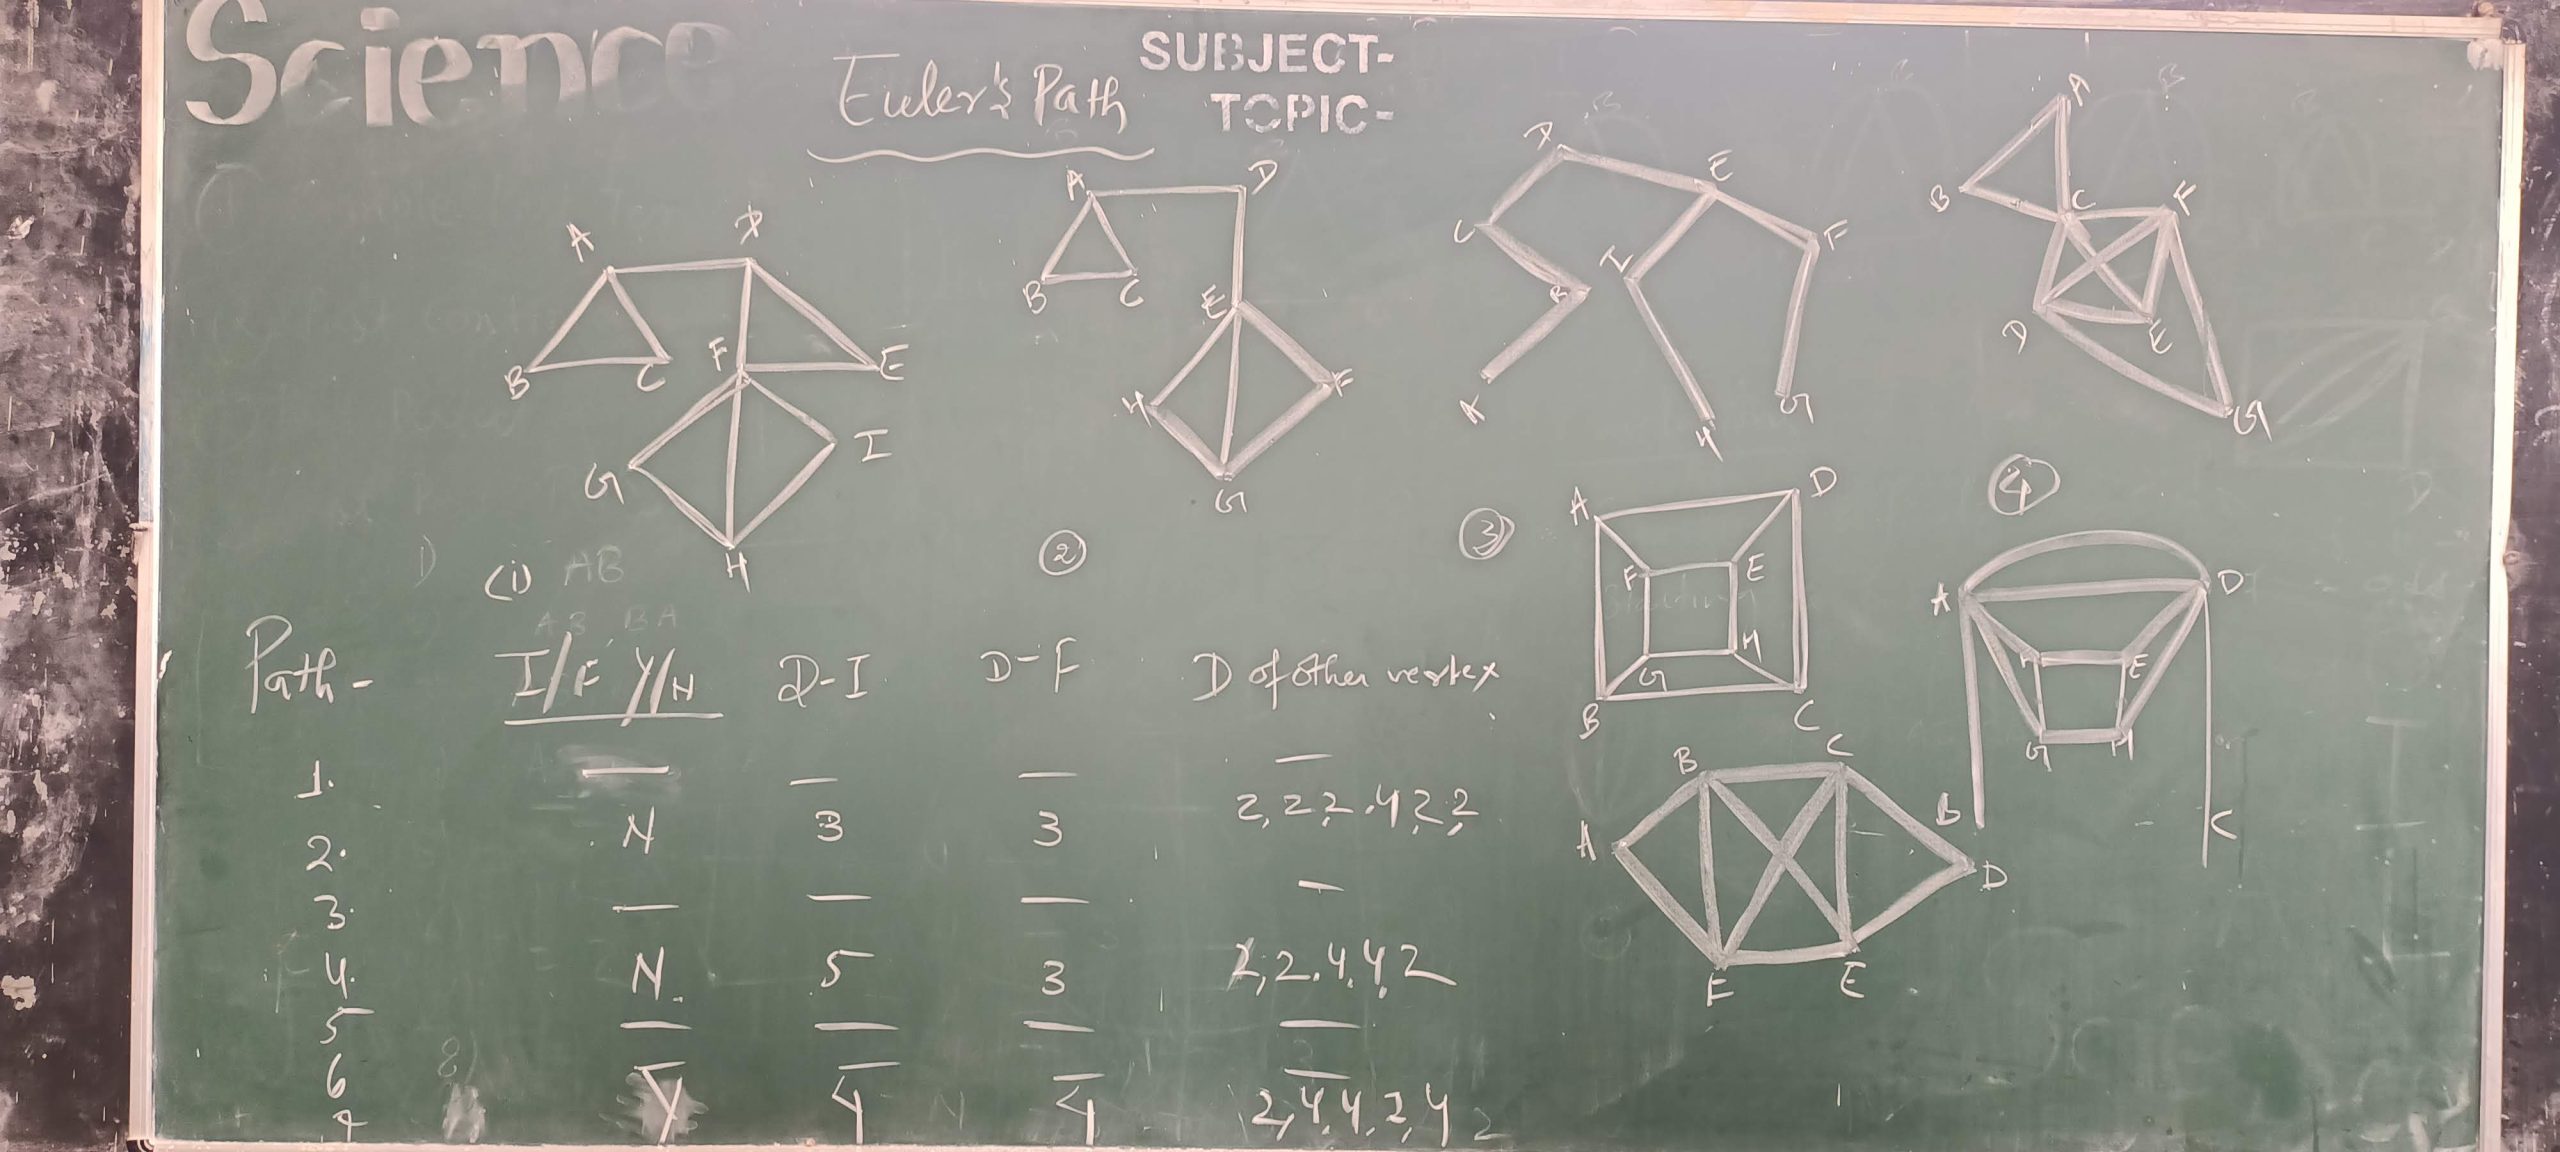 Science
SUBJECT-
TOPIC-
Euler's Path
A D
B C F E
G I
H
(i) AB
AB, BA
A D
B C E
H F
G
②
D E
C B I F
A H G
③
A
B C F
D E
G
④
A D
F E
G H
B C
A D
F E
G H
B C
B C
A D
F E
Path- I/F Y/N D-I D-F D of other vertex
1. — — — —
2. N 3 3 2,2,2,4,2,2
3. — — — —
4. N. 5 3 2,2,4,4,2
5 — — — —
6 — — — —
7 Y 4 4 2,4,4,2,4